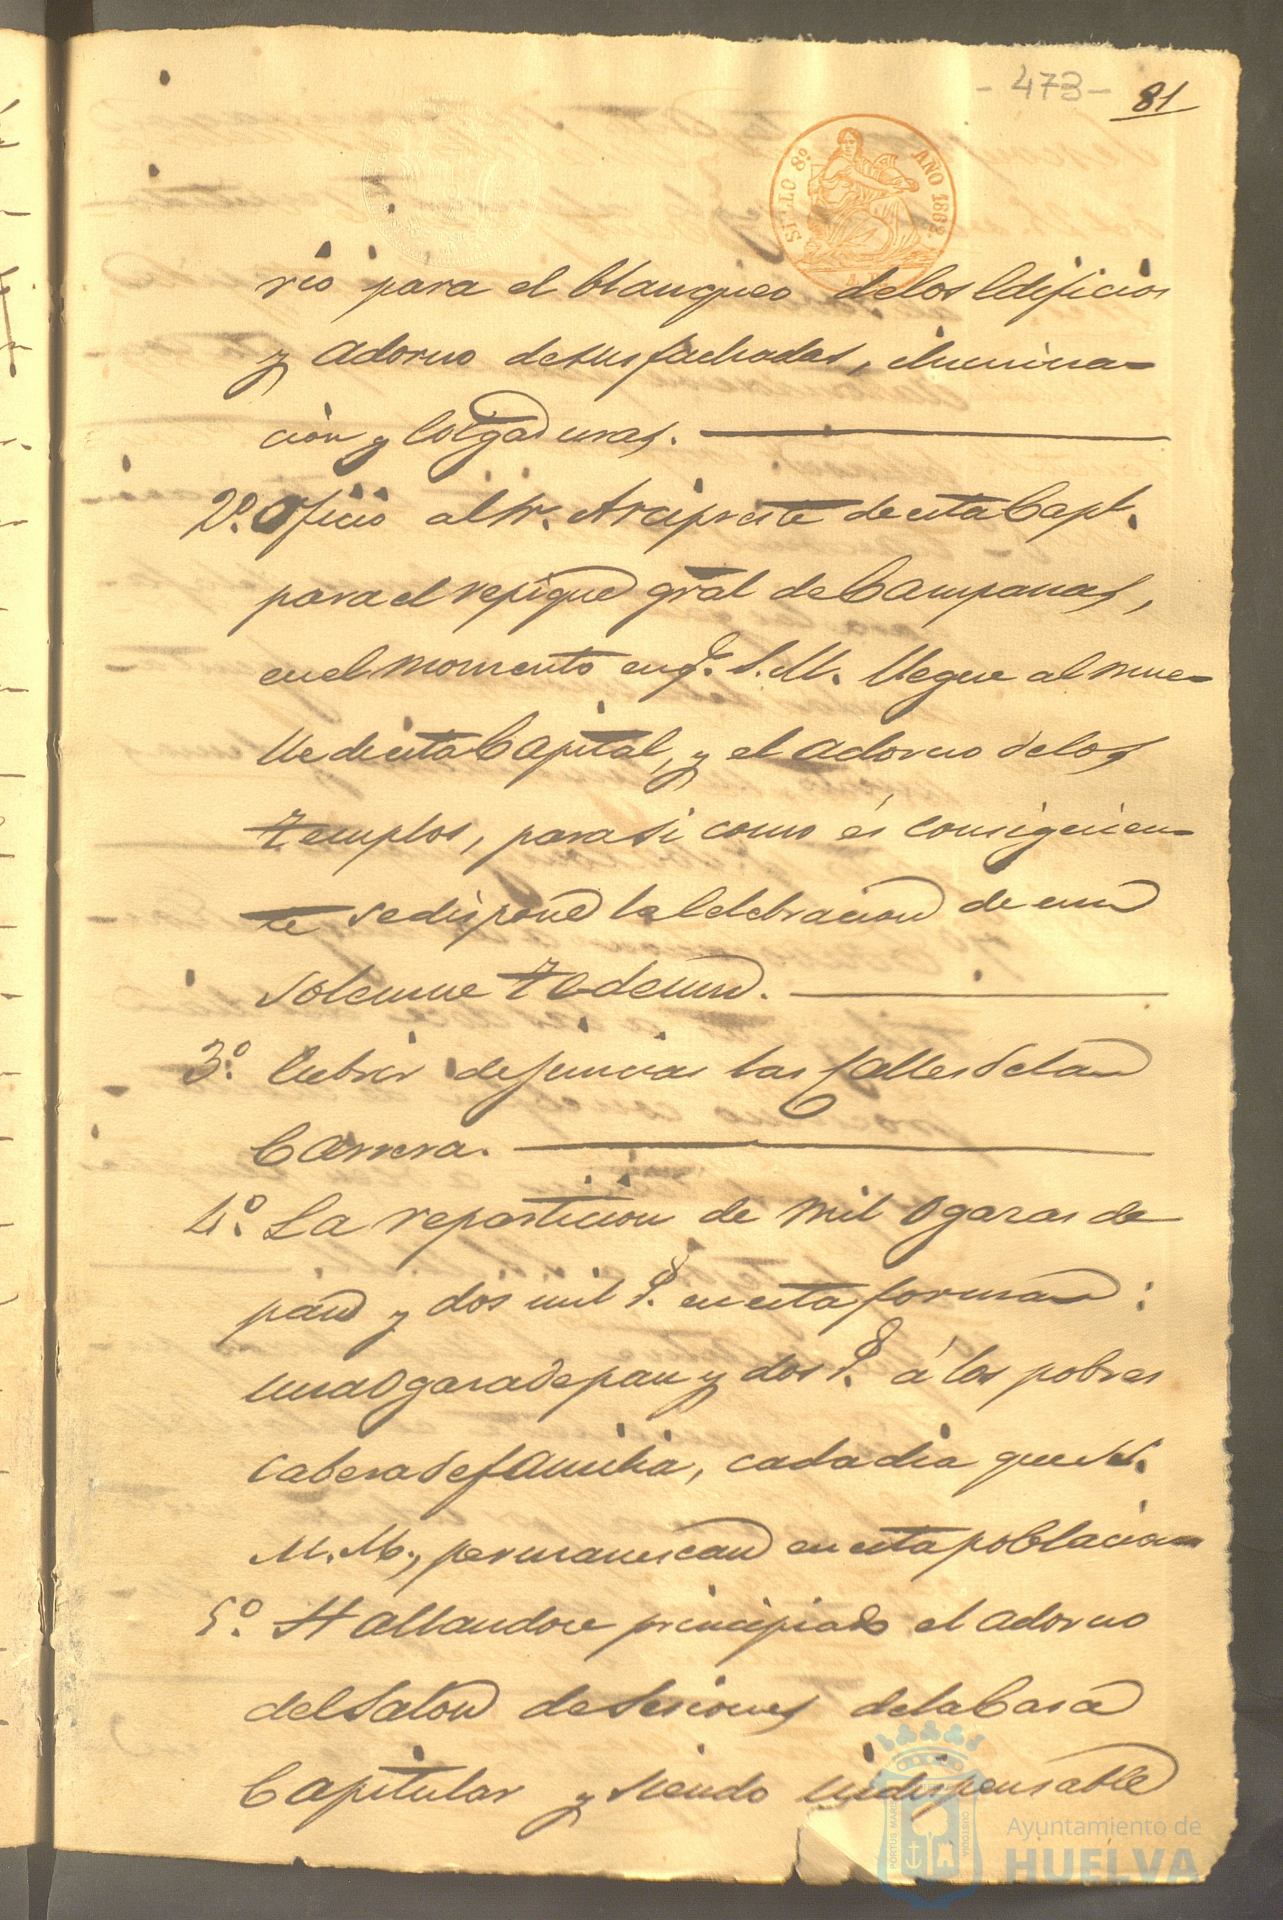 - 473 - 81
SELLO 8.º AÑO 1862.
rio para el blanqueo delos Edificios
y adorno desus fachadas, ilumina-
ción y Colgaduras.
2º. Oficio al Sr. Arcipreste de esta Capl.
para el repique gral de Campanas,
en el momento en q.e S. M. llegue al mue-
lle de esta Capital, y el adorno delos
templos, para si como és consiguien-
te se dispone la Celebracion de un
solemne Tedeum.
3º. Cubrir de juncias las Calles dela
Carrera.
4º. La reparticion de mil Ogazas de
pan y dos mil r.s en esta forma:
una Ogaza de pan y dos r.s á los pobres
cabeza de familia, cada dia que S.S.
M.M., permanescan en esta poblacion
5º. Hallandose principiado el adorno
del Salon de Sesiones dela Casa
Capitular y siendo indispensable
Ayuntamiento de
HUELVA